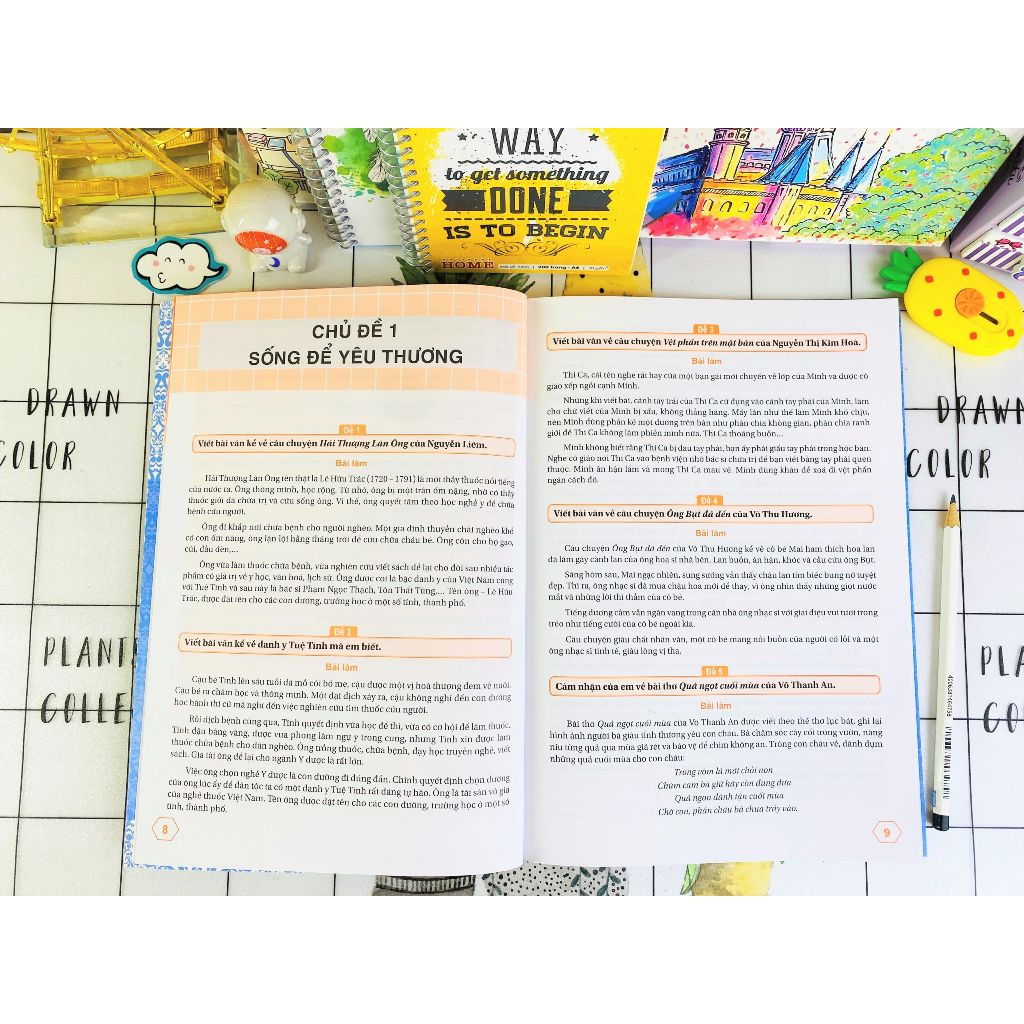 WAY
to get something
DONE
IS TO BEGIN
HOME
200 trang - A4
DRAWN
COLOR
PLANT
COLLE
DRAWN
COLOR
PLA
CO
CHỦ ĐỀ 1
SỐNG ĐỂ YÊU THƯƠNG
Đề 1
Viết bài văn kể về câu chuyện Hải Thượng Lãn Ông của Nguyễn Liêm.
Bài làm
Hải Thượng Lãn Ông tên thật là Lê Hữu Trác (1720 – 1791) là một thầy thuốc nổi tiếng
của nước ta. Ông thông minh, học rộng. Từ nhỏ, ông bị một trận ốm nặng, nhờ có thầy
thuốc giỏi đã chữa trị và cứu sống ông. Vì thế, ông quyết tâm theo học nghề y để chữa
bệnh cứu người.
Ông đi khắp nơi chữa bệnh cho người nghèo. Một gia đình thuyền chài nghèo khổ
có con ốm nặng, ông lặn lội hằng tháng trời để cứu chữa cháu bé. Ông còn cho họ gạo,
củi, dầu đèn,...
Ông vừa làm thuốc chữa bệnh, vừa nghiên cứu viết sách để lại cho đời sau nhiều tác
phẩm có giá trị về y học, văn hoá, lịch sử. Ông được coi là bậc danh y của Việt Nam cùng
với Tuệ Tĩnh và sau này là bác sĩ Phạm Ngọc Thạch, Tôn Thất Tùng,... Tên ông – Lê Hữu
Trác, được đặt tên cho các con đường, trường học ở một số tỉnh, thành phố.
Đề 2
Viết bài văn kể về danh y Tuệ Tĩnh mà em biết.
Bài làm
Cậu bé Tĩnh lên sáu tuổi đã mồ côi bố mẹ, cậu được một vị hoà thượng đem về nuôi.
Cậu bé ra chăm học và thông minh. Một đại dịch xảy ra, cậu không nghĩ đến con đường
học hành thi cử mà nghĩ đến việc nghiên cứu tìm thuốc cứu người.
Rồi dịch bệnh cũng qua, Tĩnh quyết định vừa học để thi, vừa có cơ hội để làm thuốc.
Tĩnh đậu bảng vàng, được vua phong làm ngự y trong cung, nhưng Tĩnh xin được làm
thuốc chữa bệnh cho dân nghèo. Ông trồng thuốc, chữa bệnh, dạy học truyền nghề, viết
sách. Gia tài ông để lại cho ngành Y dược là rất lớn.
Việc ông chọn nghề Y dược là con đường đi đúng đắn. Chính quyết định chọn đường
của ông lúc ấy để dân tộc ta có một danh y Tuệ Tĩnh rất đáng tự hào. Ông là tài sản vô giá
của nghề thuốc Việt Nam. Tên ông được đặt tên cho các con đường, trường học ở một số
tỉnh, thành phố.
8
Đề 3
Viết bài văn về câu chuyện Vệt phấn trên mặt bàn của Nguyễn Thị Kim Hoà.
Bài làm
Thi Ca, cái tên nghe rất hay của một bạn gái mới chuyển về lớp của Minh và được cô
giáo xếp ngồi cạnh Minh.
Những khi viết bài, cánh tay trái của Thi Ca cứ đụng vào cánh tay phải của Minh, làm
cho chữ viết của Minh bị xấu, không thẳng hàng. Mấy lần như thế làm Minh khó chịu,
nên Minh dùng phấn kẻ một đường trên bàn như phân chia không gian, phân chia ranh
giới để Thi Ca không làm phiền mình nữa. Thi Ca thoáng buồn...
Minh không biết rằng Thi Ca bị đau tay phải, bạn ấy phải giấu tay phải trong hộc bàn.
Nghe cô giáo nói Thi Ca vào bệnh viện nhờ bác sĩ chữa trị để bạn viết bằng tay phải quen
thuộc. Minh ân hận lắm và mong Thi Ca mau về. Minh dùng khăn để xoá đi vệt phấn
ngăn cách đó.
Đề 4
Viết bài văn về câu chuyện Ông Bụt đã đến của Võ Thu Hương.
Bài làm
Câu chuyện Ông Bụt đã đến của Võ Thu Hương kể về cô bé Mai ham thích hoa lan
đã làm gãy cành lan của ông hoạ sĩ nhà bên. Lan buồn, ân hận, khóc và cầu cứu ông Bụt.
Sáng hôm sau, Mai ngạc nhiên, sung sướng vẫn thấy chậu lan tím biếc bung nở tuyệt
đẹp. Thì ra, ông nhạc sĩ đã mua chậu hoa mới để thay, vì ông nhìn thấy những giọt nước
mắt và những lời thì thầm của cô bé.
Tiếng dương cầm vẫn ngân vang trong căn nhà ông nhạc sĩ với giai điệu vui tươi trong
trẻo như tiếng cười của cô bé ngoài kia.
Câu chuyện giàu chất nhân văn, một cô bé mang nỗi buồn của người có lỗi và một
ông nhạc sĩ tinh tế, giàu lòng vị tha.
Đề 5
Cảm nhận của em về bài thơ Quả ngọt cuối mùa của Võ Thanh An.
Bài làm
Bài thơ Quả ngọt cuối mùa của Võ Thanh An được viết theo thể thơ lục bát, ghi lại
hình ảnh người bà giàu tình thương yêu con cháu. Bà chăm sóc cây cối trong vườn, nâng
niu từng quả qua mùa giá rét và bảo vệ để chim không ăn. Trông con cháu về, dành dụm
những quả cuối mùa cho con cháu:
Trong vòm lá mới chồi non
Chùm cam bà giữ hãy còn đung đưa
Quả ngon dành tận cuối mùa
Chờ con, phần cháu bà chưa trẩy vào.
9